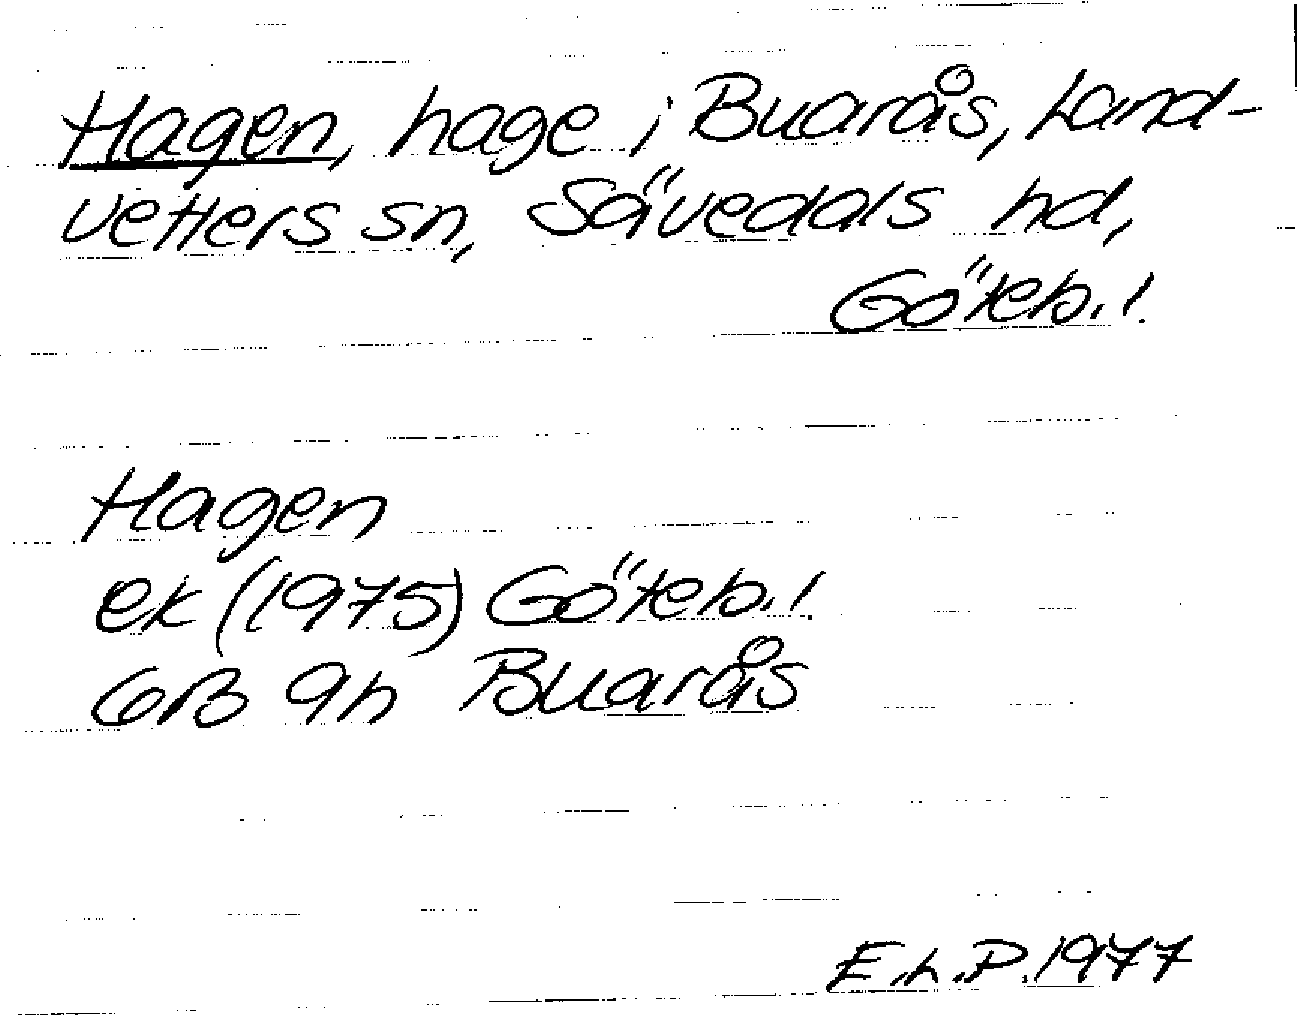 Hagen, hage i Buarås, Land-
vetters sn, Sävedals hd,
Göteb. l.
Hagen
ek (1975) Göteb. l.
6B 9h Buarås
E.L.P. 1977